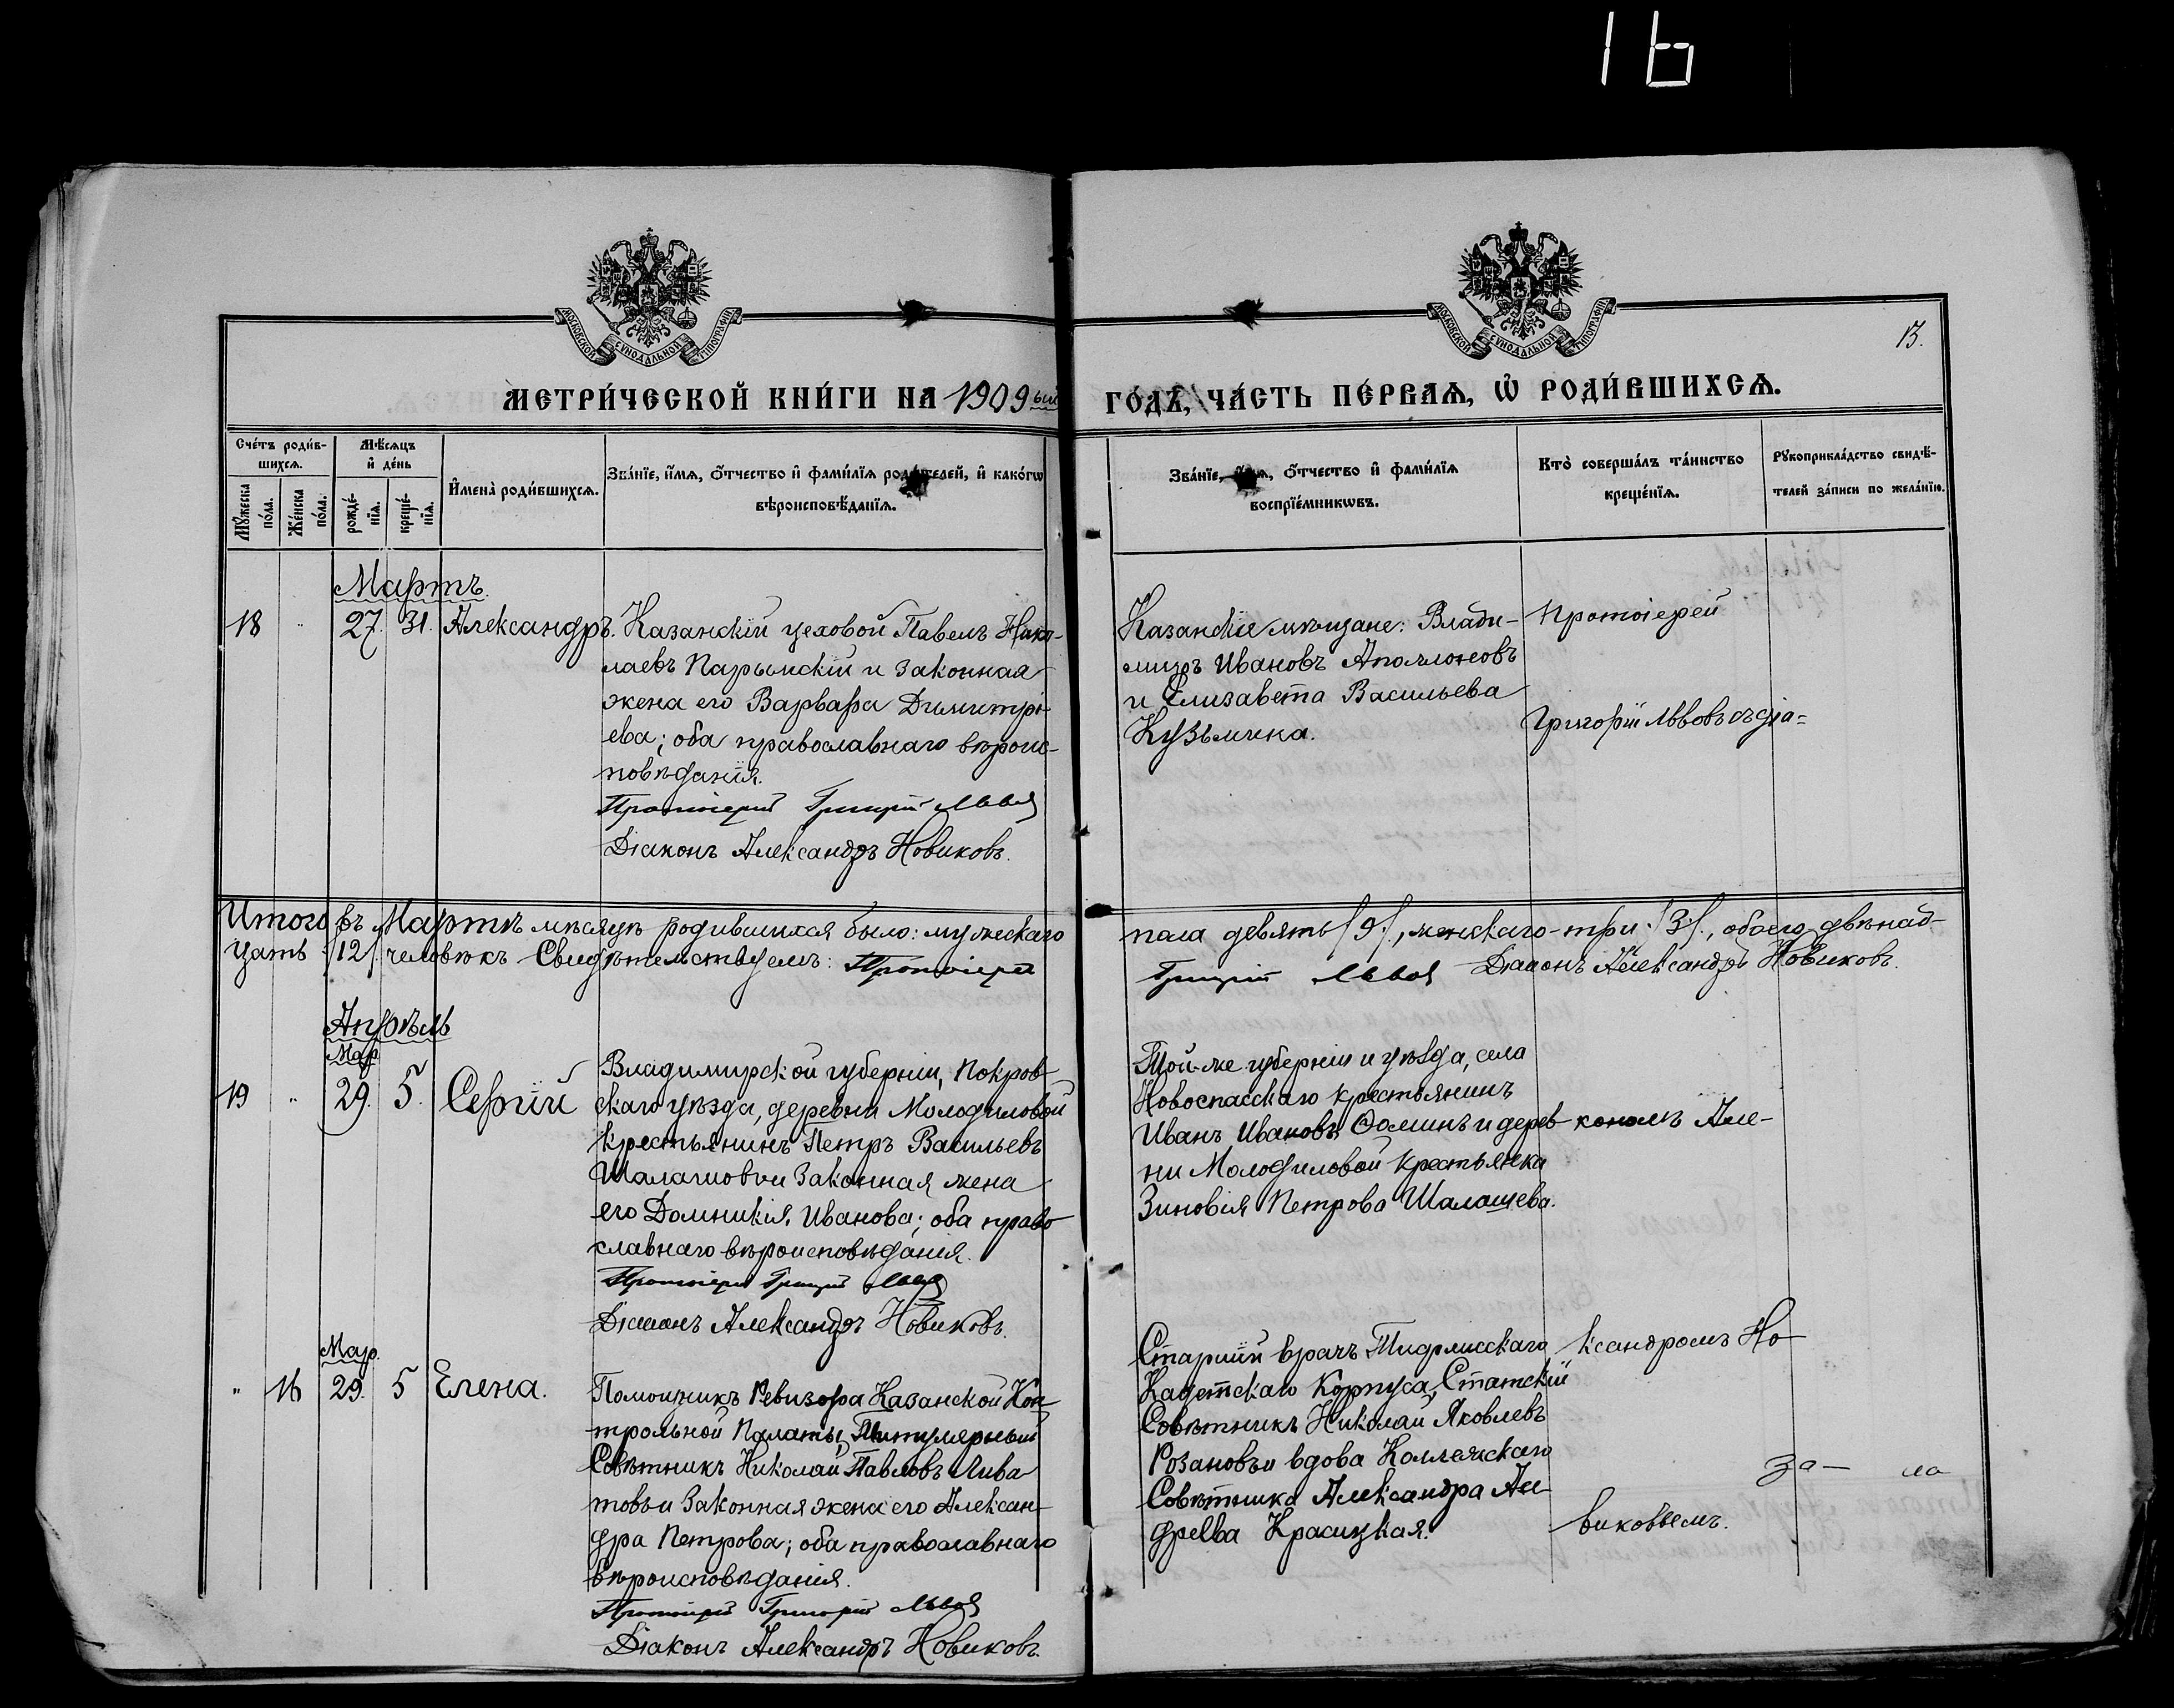 16
МОСКОВСКОЙ СУНОДАЛЬНОЙ ТИПОГРАФІИ
МОСКОВСКОЙ СУНОДАЛЬНОЙ ТИПОГРАФІИ
13.
МЕТРИ́ЧЕСКОЙ КНИ́ГИ НА 1909ый ГО́ДЪ, ЧА́СТЬ ПЕ́РВАѦ, Ѡ҆ РОДИ́ВШИХСѦ.
Сче́тъ роди́в-
шихсѧ.
Мѣ́сѧцъ
и҆ де́нь
Мꙋ́жеска
по́ла.
Же́нска
по́ла.
рожде́-
нїѧ.
креще́-
нїѧ.
И҆мена̀ роди́вшихсѧ.
Зва́нїе, и҆́мѧ, ѻ҆́тчество и҆ фами́лїѧ роди́телей, и҆ како́гѡ
вѣроисповѣ́данїѧ.
Зва́нїе, и҆́мѧ, ѻ҆́тчество и҆ фами́лїѧ
воспрїе́мникѡвъ.
Кто̀ соверша́лъ та́инство
креще́нїѧ.
Рꙋкоприкла́дство свидѣ́-
телей за́писи по жела́нїю.
Мартъ.
18 " 27. 31. Александръ.
Казанскій цеховой Павелъ Нико-
лаевъ Нарымскій и законная
жена его Варвара Димитрі-
ева; оба православнаго вѣроис-
повѣданія.
Протоіерей Григорій Львовъ
Діаконъ Александръ Новиковъ.
Казанскіе мѣщане: Влади-
миръ Ивановъ Аполлоновъ
и Елизавета Васильева
Кузьмина.
Протоіерей
Григорій Львовъ съ діа=
Итого въ Мартѣ мѣсяцѣ родившихся было: мужескаго пола девять /9/, женскаго-три /3/, обоего двѣнад-
цать /12/ человѣкъ Свидѣтельствуемъ: Протоіерей Григорій Львовъ Діаконъ Александръ Новиковъ.
Апрѣль
Мар
19 " 29. 5. Сергій
Владимирской губерніи, Покров-
скаго уѣзда, деревни Молодиловой
крестьянинъ Петръ Васильевъ
Шалашовъ и законная жена
его Домникія Иванова; оба право-
славнаго вѣроисповѣданія.
Протоіерей Григорій Львовъ
Діаконъ Александръ Новиковъ.
Той-же губерніи и уѣзда, села
Новоспасскаго крестьянинъ
Иванъ Ивановъ Ѳоминъ и дерев-
ни Молодиловой крестьянка
Зиновія Петрова Шалашева.
кономъ Але-
Мар.
" 16 29. 5 Елена.
Помощникъ Ревизора Казанской Кон-
трольной Палаты, Титулярный
Совѣтникъ Николай Павловъ Лива-
товъ и законная жена его Алексан-
дра Петрова; оба православнаго
вѣроисповѣданія.
Протоіерей Григорій Львовъ
Діаконъ Александръ Новиковъ.
Старшій врачъ Тифлисскаго
Кадетскаго Корпуса, Статскій
Совѣтникъ Николай Яковлевъ
Розановъ и вдова Коллежскаго
Совѣтника Александра Ан-
дреева Красицкая.
ксандромъ Но-
виковвемъ.